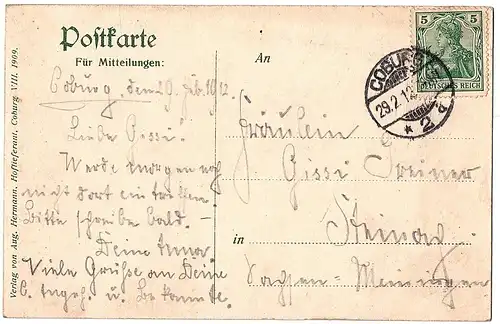 Postkarte
Für Mitteilungen:
An
Coburg, den 29. Feb. 1912.
Liebe Gissi!
Werde morgen noch
nicht dort eintreffen.
Bitte schreibe bald. –
Deine Anna
Viele Grüße an Deine
l. Angeh. u. Bekannte.
Fräulein
Gissi Greiner
in
Steinach
Sachsen-Meiningen
5 5
DEUTSCHES REICH
COBURG
29.2.12
* 2 a
Verlag von Aug. Hermann, Hoflieferant, Coburg VIII. 1909.